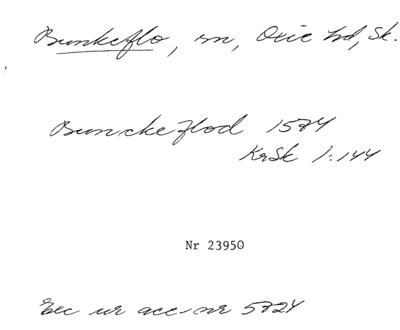 Bunkeflo, sn, Oxie hd, Sk.
Bunckeflod 1584
KrSk 1:144
Nr 23950
Exc ur acc-nr 5724